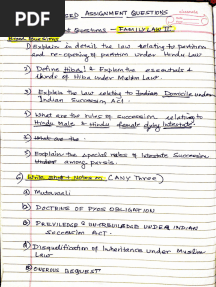 PDF
ASSIGNMENT QUESTIONS
Questions - FAMILY LAW II
Broad Questions
1) Explain in detail the law relating to partition
and re-opening of partition under Hindu Law
2) Define & Explain the essentials &
kinds of Hiba under Muslim Law.
3) Explain the law relating to Indian Domicile under
Indian Succession Act.
4) What are the rules of succession relating to
Hindu Male & Hindu female dying Intestate.
5) What are the
5) Explain the special rules of Intestate Succession
Under among parsis.
6) Write short Notes on (ANY Three)
a) Mutawali
b) DOCTRINE OF PYOS OBLIGATION
c) PREVILEGED & UNPREVILEGED UNDER INDIAN
Succession ACT.
d) Disqualification of Inheritance under Muslim
Law
e) ONEROUS BEQUEST